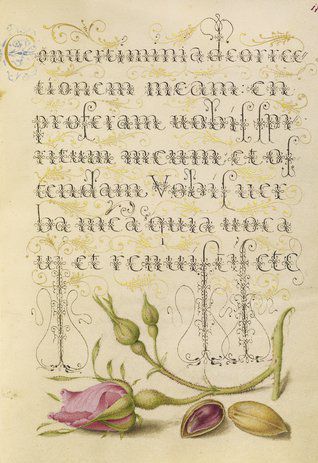 Conuertimini ad correc
tionem meam : en
proferam uobis spi
ritum meum et os
tendam Vobis uer
ba mea quia uoca
ui et renuistis etc